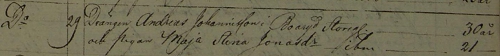 Do 29 Drängen Andreas Johannisson i Boaryd Storeg. 30
och pigan Maja Stina Jonasdr Sibm. 21